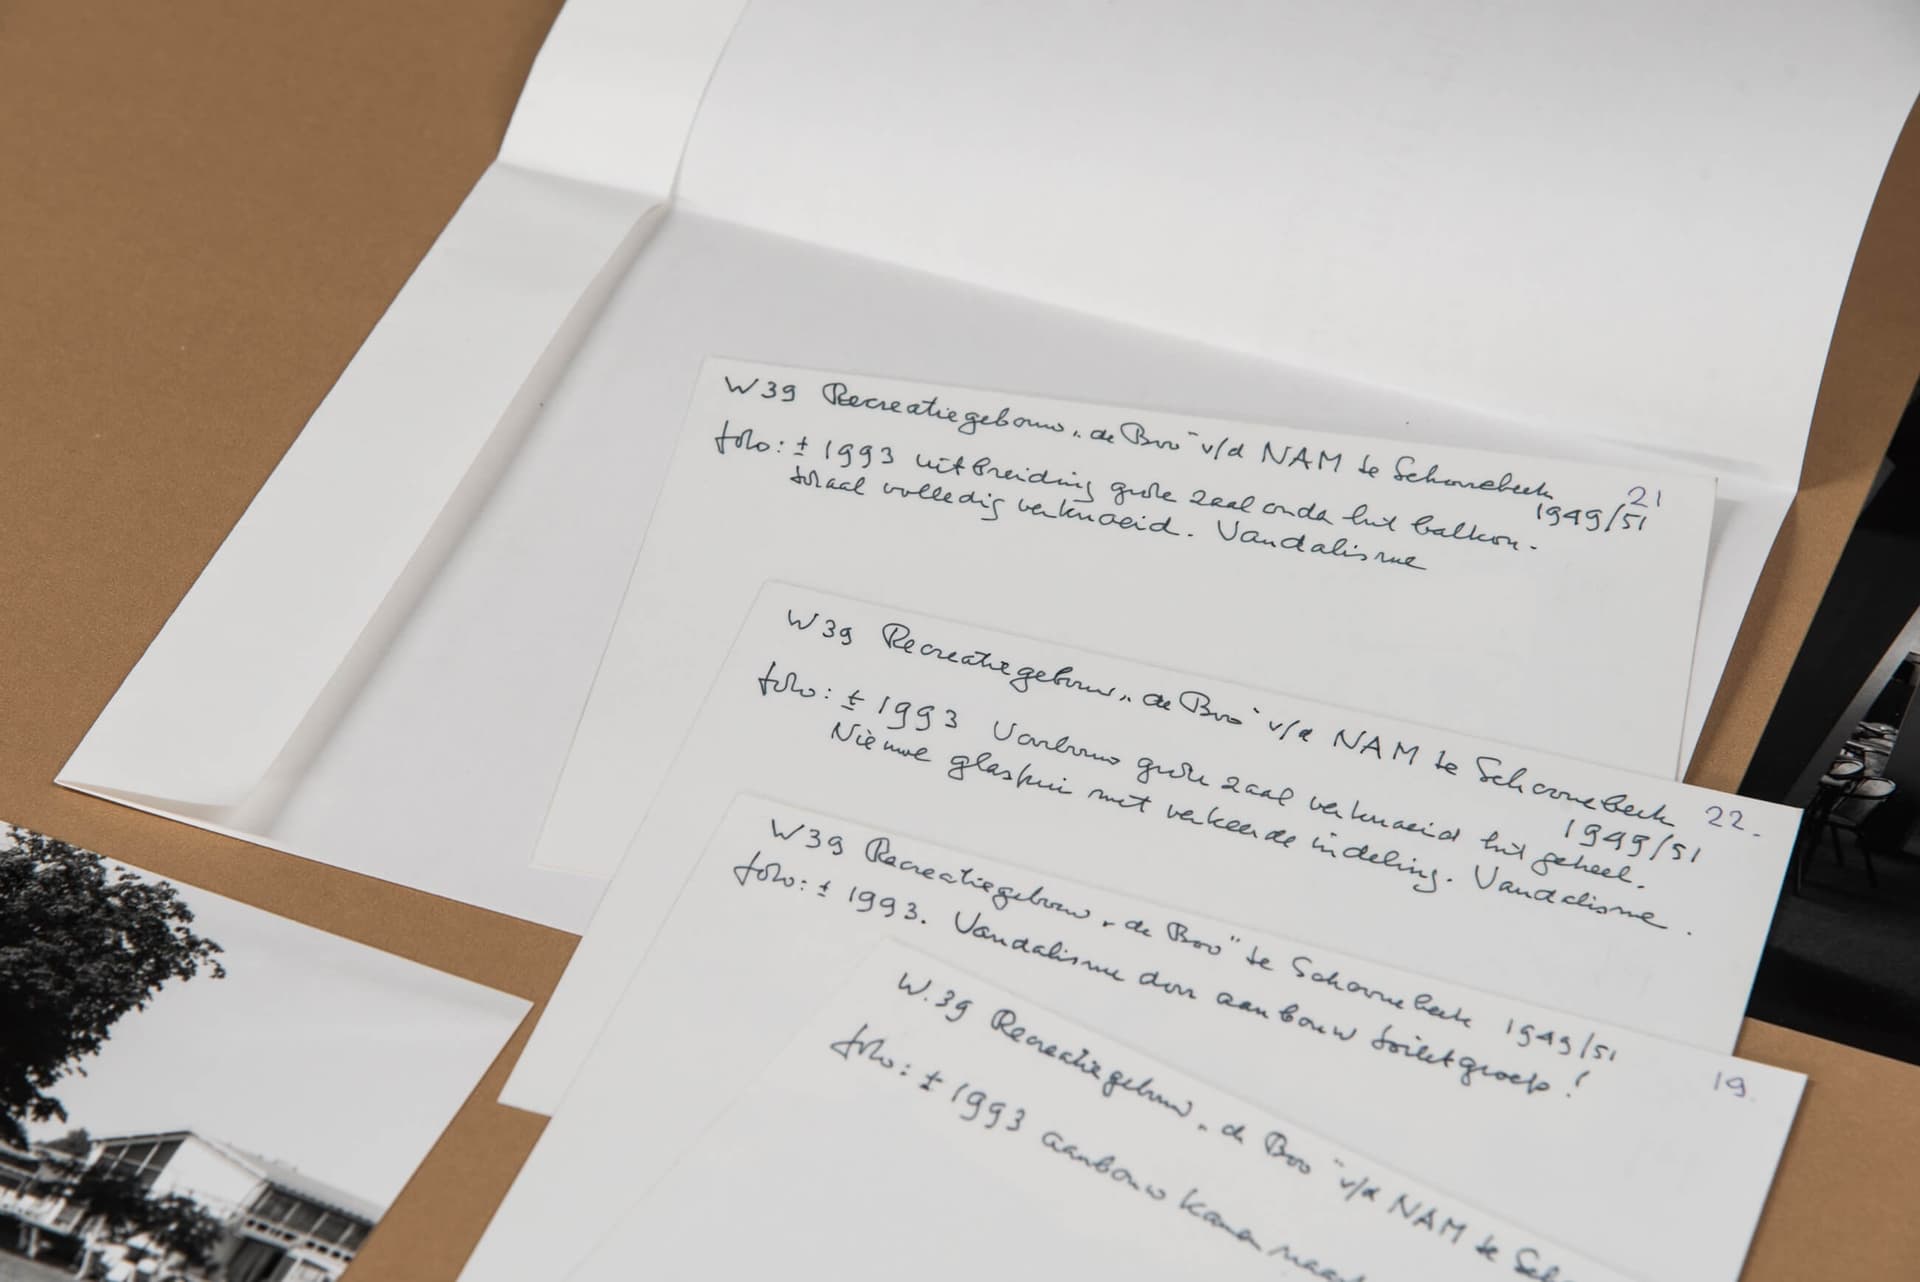 W39 Recreatiegebouw „de Boo” v/d NAM te Schoonebeek
21
1949/51
foto: ± 1993 uitbreiding grote zaal onder het balkon.
totaal volledig verknoeid. Vandalisme
W39 Recreatiegebouw „de Boo” v/d NAM te Schoonebeek
22.
1949/51
foto: ± 1993 Voorbouw grote zaal verknoeid het geheel.
Nieuwe glaspui met verkeerde indeling. Vandalisme.
W39 Recreatiegebouw „de Boo” te Schoonebeek 1949/51
19.
foto: ± 1993. Vandalisme door aanbouw toiletgroep!
W.39 Recreatiegebouw „de Boo” v/d NAM te Scho
foto: ± 1993 aanbouw kamer naast